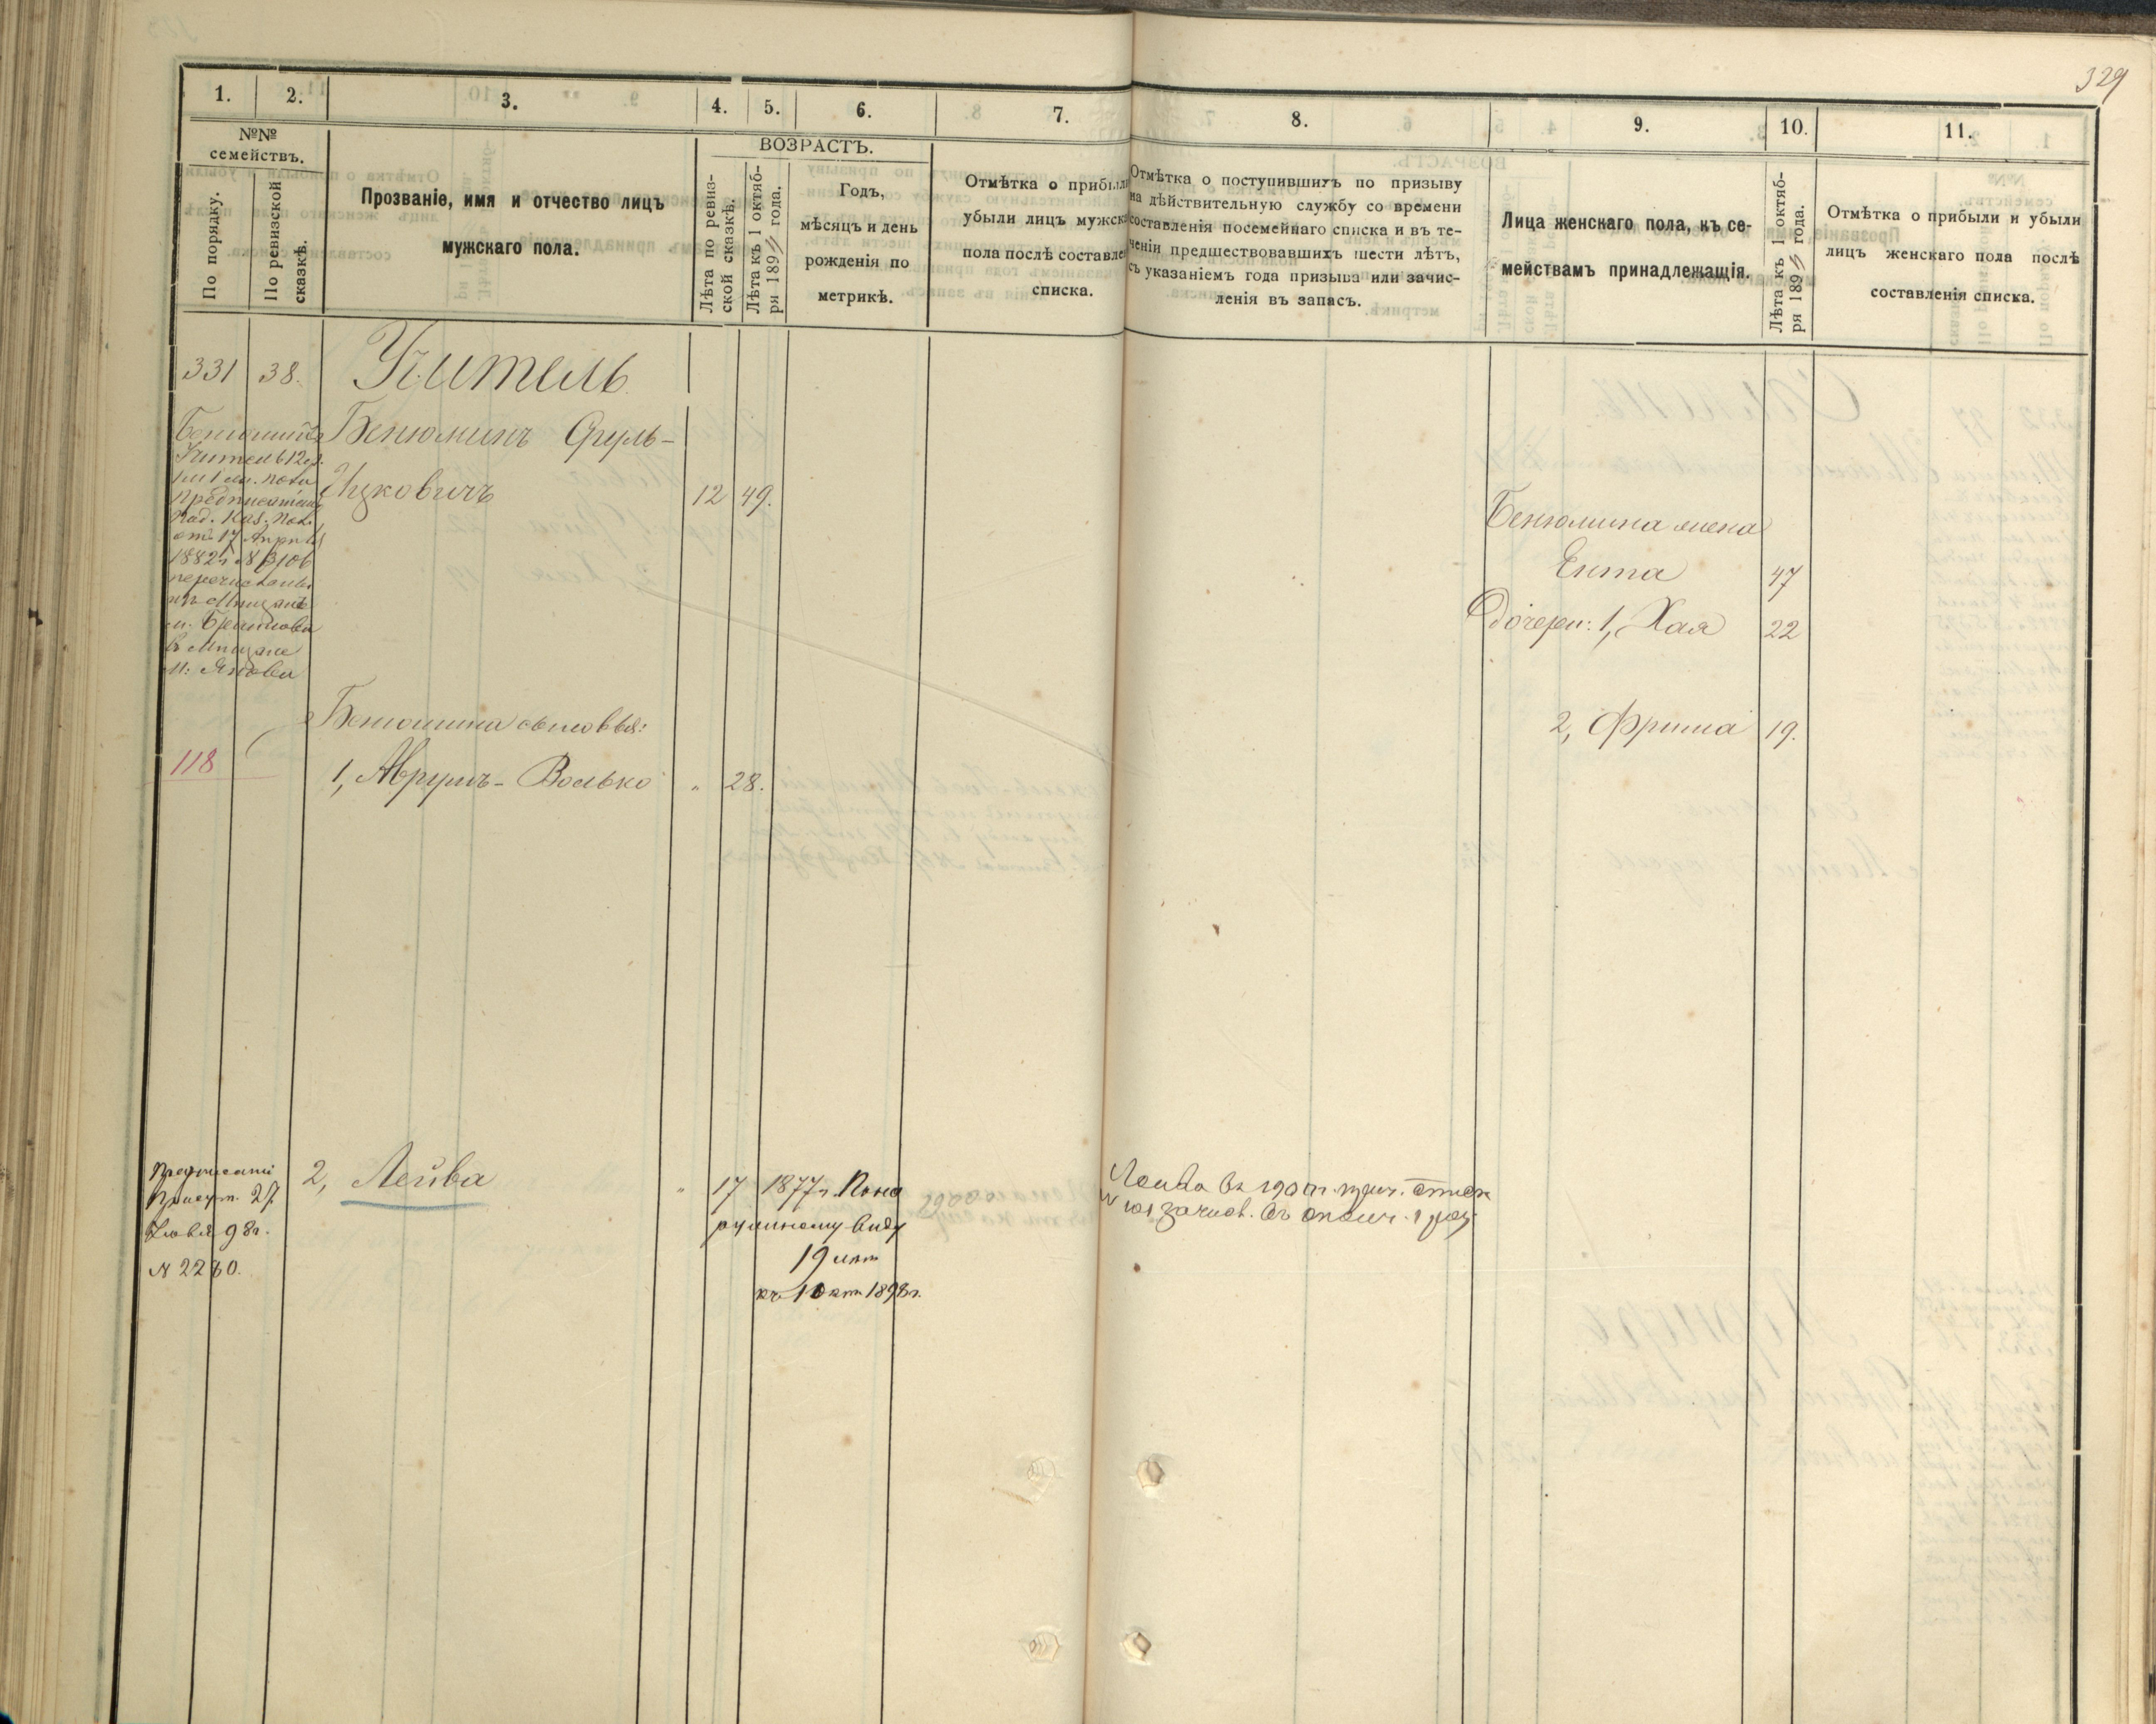 329
1. 2. 3. 4. 5. 6. 7. 8. 9. 10. 11.
№№ семействъ.
По порядку.
По ревизской сказкѣ.
Прозваніе, имя и отчество лицъ
мужскаго пола.
ВОЗРАСТЪ.
Лѣта по ревиз-
ской сказкѣ.
Лѣта къ 1 октяб-
ря 189 года.
Годъ,
мѣсяцъ и день
рожденія по
метрикѣ.
Отмѣтка о прибыли
убыли лицъ мужск
пола послѣ составле
списка.
Отмѣтка о поступившихъ по призыву
на дѣйствительную службу со времени
составленія посемейнаго списка и въ те-
ченіи предшествовавшихъ шести лѣтъ,
съ указаніемъ года призыва или зачис-
ленія въ запасъ.
Лица женскаго пола, къ се-
мействамъ принадлежащія.
Лѣта къ 1 октяб-
ря 189 года.
Отмѣтка о прибыли и убыли
лицъ женскаго пола послѣ
составленія списка.
331 38. Учитель
Бенюминъ Сруль-
Ицковичъ 12 49.
Бенюминъ
Учитель 12
предписанію
Под. Каз. Пал.
отъ 17 Апрѣля
1882 г.
перечисленъ
изъ Мѣщанъ
м. Браилова
въ Мѣщане
м. Янова
Бенюмина жена
Ента 47
дочери: 1, Хая 22
2, Фрима 19.
Бенюмина сыновья:
118
1, Аврумъ-Волько " 28.
2, Лейва " 17
Предписані
Присут. 27
98г.
N 2260.
1877 г. По на
ружному виду
19 лѣт
къ 1 Окт 1898г.
Лейба въ 1900 г.
зачисл. въ ополч. 1 раз.